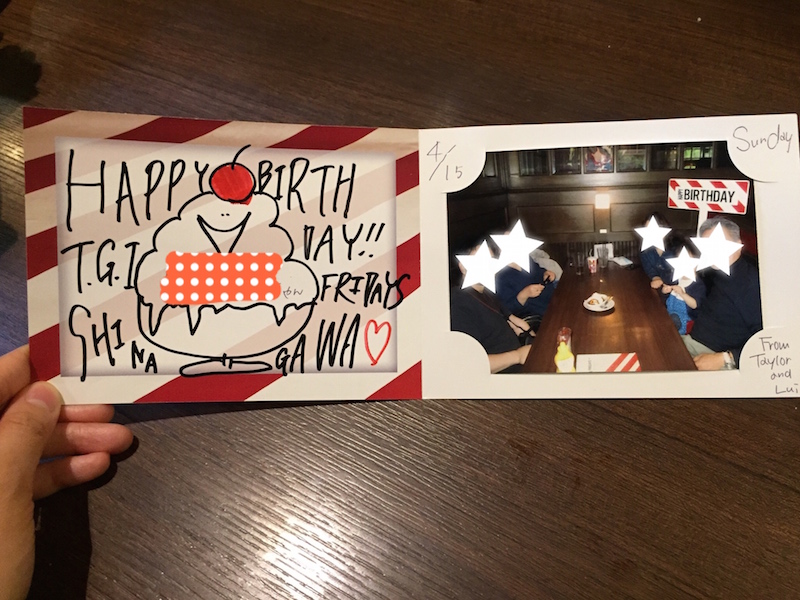 HAPPY BIRTH
DAY!!
T.G.I
FRIDAYS
SHINAGAWA
4/15
Sunday
BIRTHDAY
From
Taylor
and
Lui